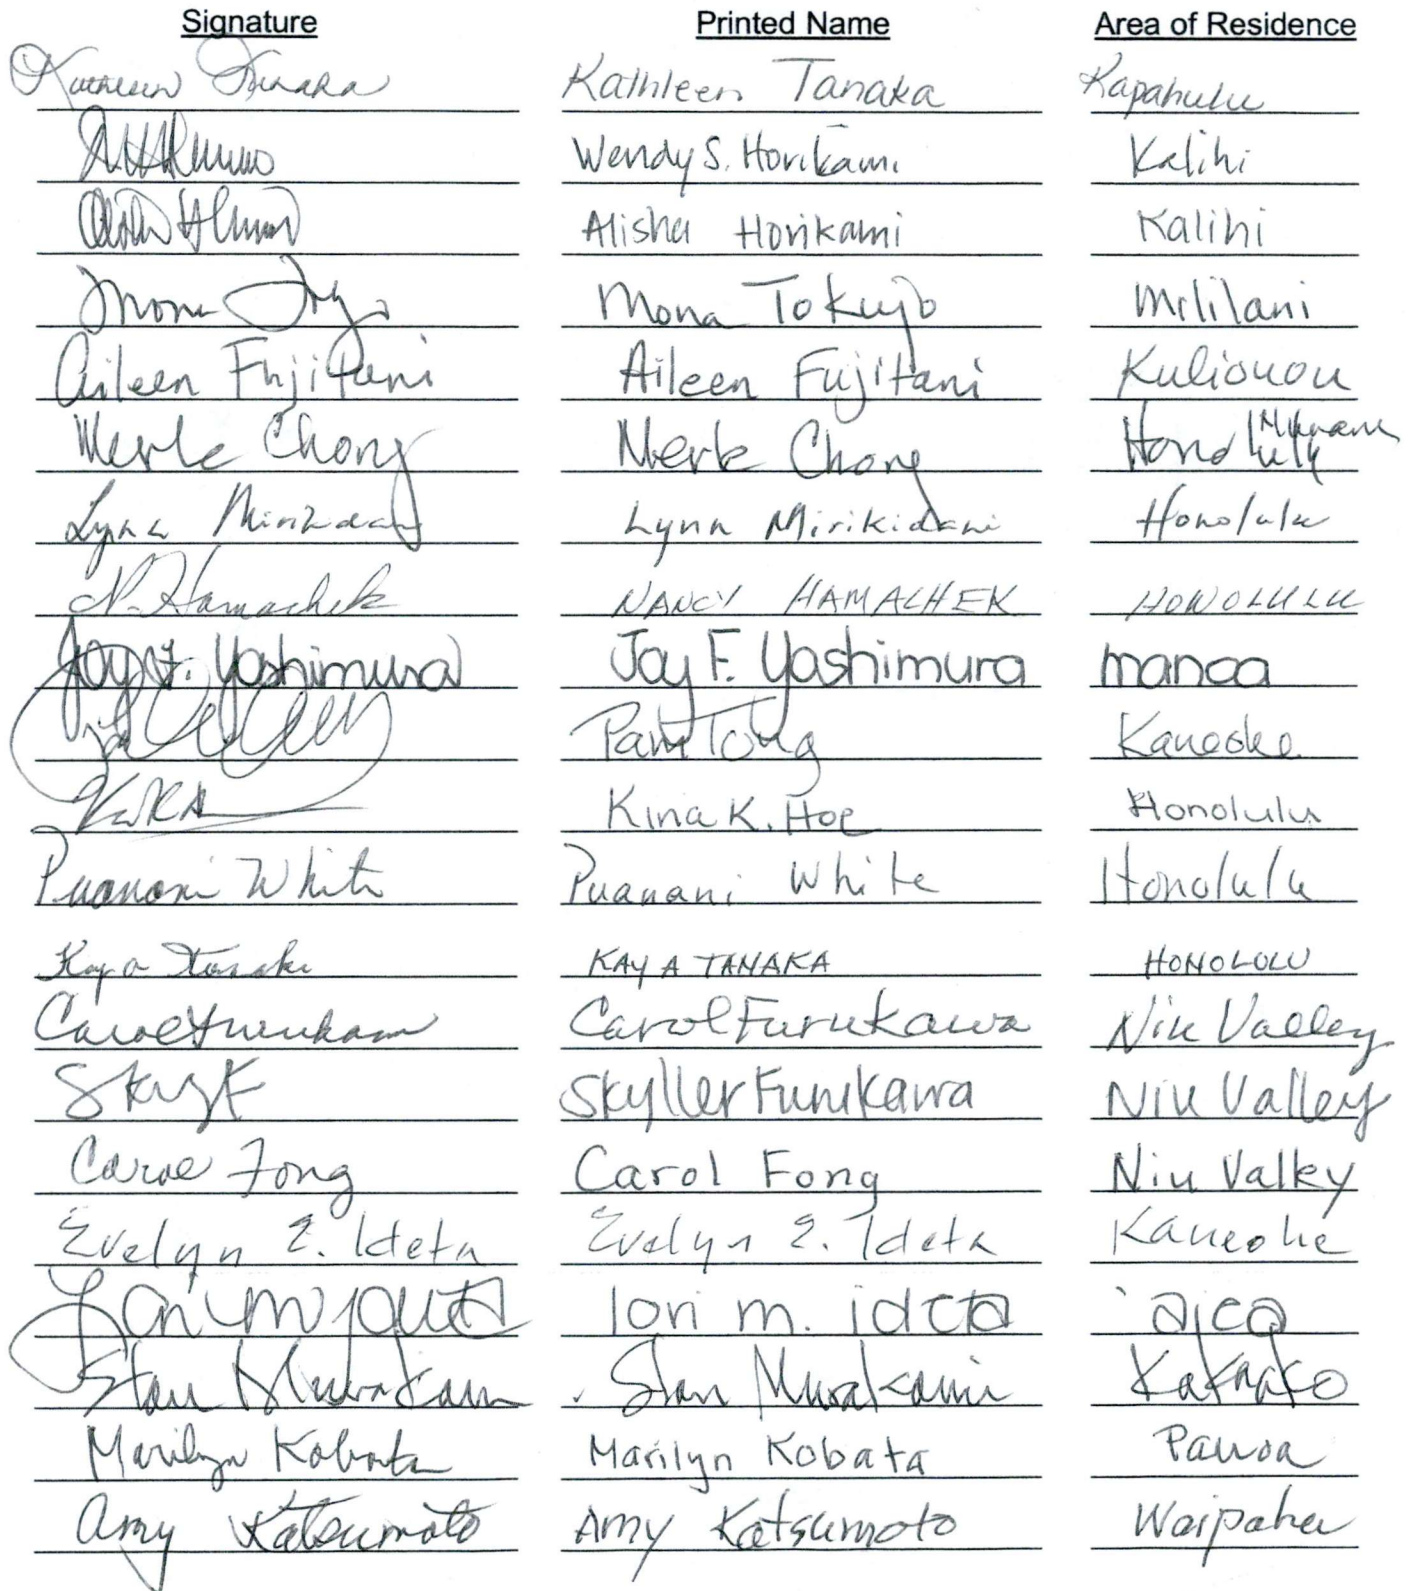 Signature Printed Name Area of Residence
Kathleen Tanaka Kathleen Tanaka Kapahulu
Wendy S. Horikami Kalihi
Alisha Horikami Kalihi
Mona Tokujo Mililani
Aileen Fujitani Aileen Fujitani Kuliouou
Merle Chong Merle Chong Honolulu
Lynn Mirikidani Lynn Mirikidani Honolulu
N. Hamachek NANCY HAMACHEK HONOLULU
Joy F. Yoshimura Joy F. Yoshimura manoa
Pam Tong Kaneohe
Kina K. Hoe Honolulu
Puanani White Puanani White Honolulu
Kay A Tanaka KAY A TANAKA HONOLULU
Carol Furukawa Carol Furukawa Niu Valley
Skyller Furukawa Niu Valley
Carol Fong Carol Fong Niu Valley
Evelyn E. Ideta Evelyn E. Ideta Kaneohe
Lori m ideta lori m. ideta 'aiea
Stan Murakami Stan Murakami Kakaako
Marilyn Kobata Marilyn Kobata Pauoa
Amy Katsumoto Amy Katsumoto Waipahu